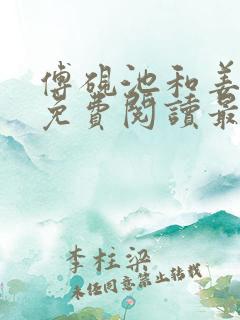 傅硯池和姜
免費閱讀最
李柱梁
未经同意禁止转载